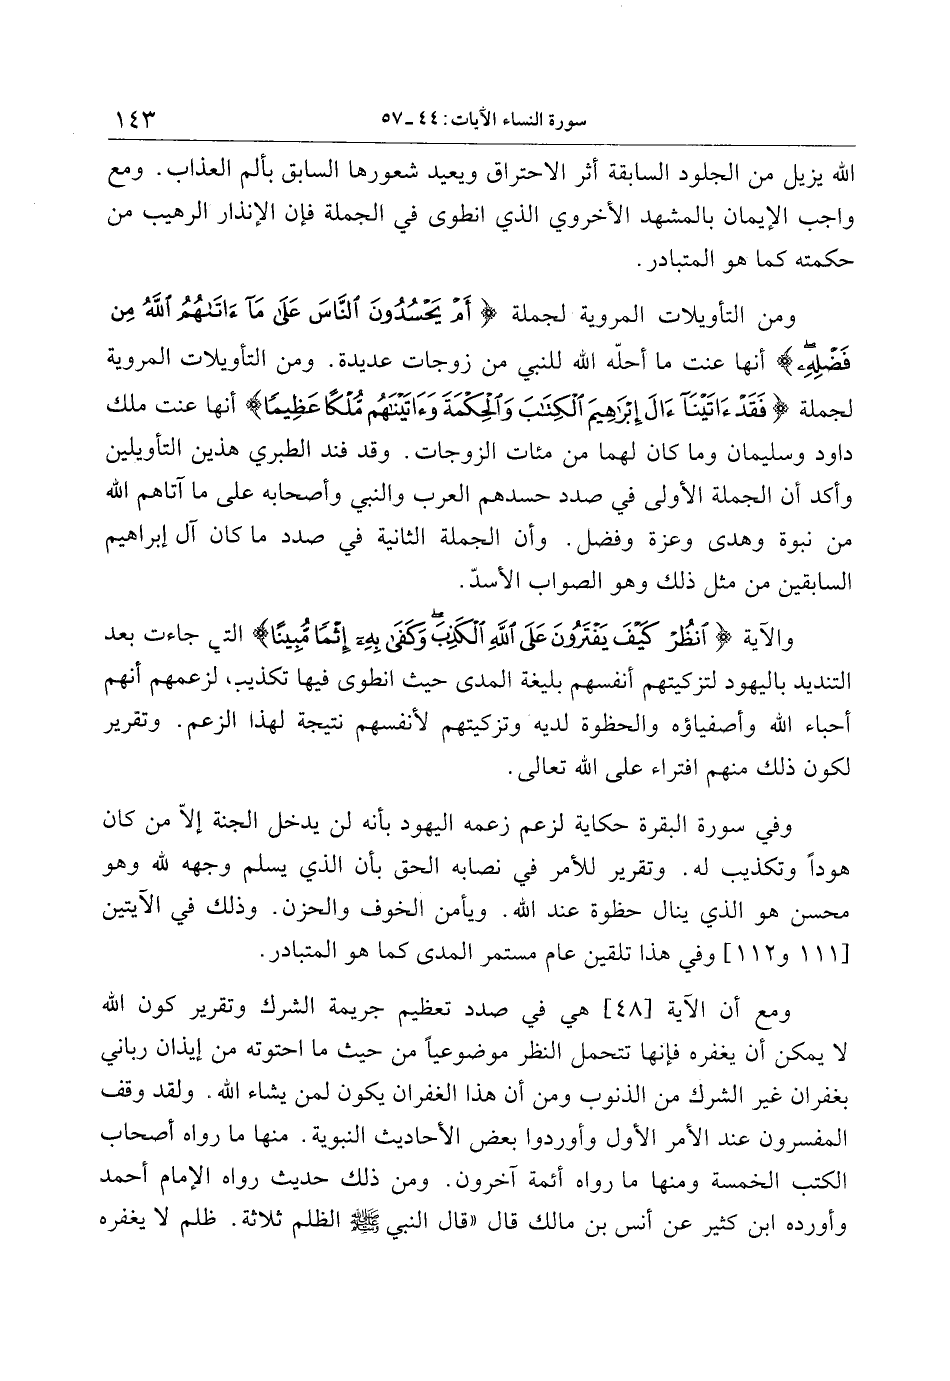 سورة النساء الآيات: ٤٤ـ٥٧ ١٤٣
الله يزيل من الجلود السابقة أثر الاحتراق ويعيد شعورها السابق بألم العذاب. ومع
واجب الإيمان بالمشهد الأخروي الذي انطوى في الجملة فإن الإنذار الرهيب من
حكمته كما هو المتبادر.
ومن التأويلات المروية لجملة ﴿أَمْ يَحْسُدُونَ ٱلنَّاسَ عَلَىٰ مَآ ءَاتَىٰهُمُ ٱللَّهُ مِن
فَضْلِهِۦۖ﴾ أنها عنت ما أحلّه الله للنبي من زوجات عديدة. ومن التأويلات المروية
لجملة ﴿فَقَدْ ءَاتَيْنَآ ءَالَ إِبْرَٰهِيمَ ٱلْكِتَٰبَ وَٱلْحِكْمَةَ وَءَاتَيْنَٰهُم مُّلْكًا عَظِيمًا﴾ أنها عنت ملك
داود وسليمان وما كان لهما من مئات الزوجات. وقد فند الطبري هذين التأويلين
وأكد أن الجملة الأولى في صدد حسدهم العرب والنبي وأصحابه على ما آتاهم الله
من نبوة وهدى وعزة وفضل. وأن الجملة الثانية في صدد ما كان آل إبراهيم
السابقين من مثل ذلك وهو الصواب الأسدّ.
والآية ﴿ٱنظُرْ كَيْفَ يَفْتَرُونَ عَلَى ٱللَّهِ ٱلْكَذِبَۖ وَكَفَىٰ بِهِۦٓ إِثْمًا مُّبِينًا﴾ التي جاءت بعد
التنديد باليهود لتزكيتهم أنفسهم بليغة المدى حيث انطوى فيها تكذيب لزعمهم أنهم
أحباء الله وأصفياؤه والحظوة لديه وتزكيتهم لأنفسهم نتيجة لهذا الزعم. وتقرير
لكون ذلك منهم افتراء على الله تعالى.
وفي سورة البقرة حكاية لزعم زعمه اليهود بأنه لن يدخل الجنة إلاّ من كان
هوداً وتكذيب له. وتقرير للأمر في نصابه الحق بأن الذي يسلم وجهه لله وهو
محسن هو الذي ينال حظوة عند الله. ويأمن الخوف والحزن. وذلك في الآيتين
[١١١ و١١٢] وفي هذا تلقين عام مستمر المدى كما هو المتبادر.
ومع أن الآية [٤٨] هي في صدد تعظيم جريمة الشرك وتقرير كون الله
لا يمكن أن يغفره فإنها تتحمل النظر موضوعياً من حيث ما احتوته من إيذان رباني
بغفران غير الشرك من الذنوب ومن أن هذا الغفران يكون لمن يشاء الله. ولقد وقف
المفسرون عند الأمر الأول وأوردوا بعض الأحاديث النبوية. منها ما رواه أصحاب
الكتب الخمسة ومنها ما رواه أئمة آخرون. ومن ذلك حديث رواه الإمام أحمد
وأورده ابن كثير عن أنس بن مالك قال «قال النبي ﷺ الظلم ثلاثة. ظلم لا يغفره